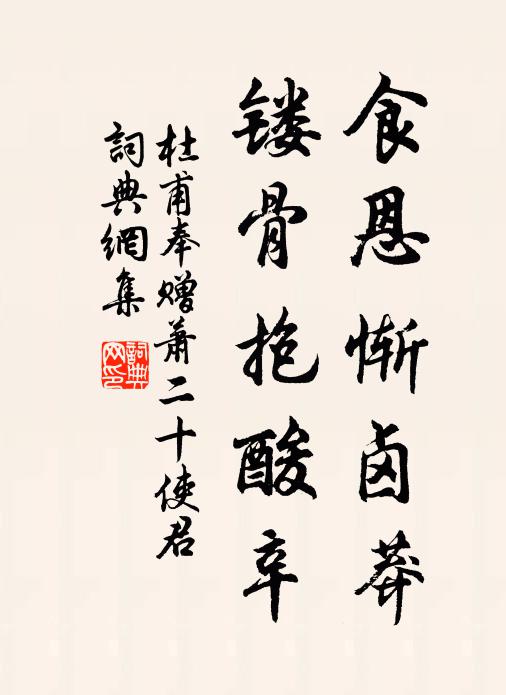 食恩惭卤莽
镂骨抱酸辛
杜甫奉赠萧二十使君
詞典網集
詞典网印